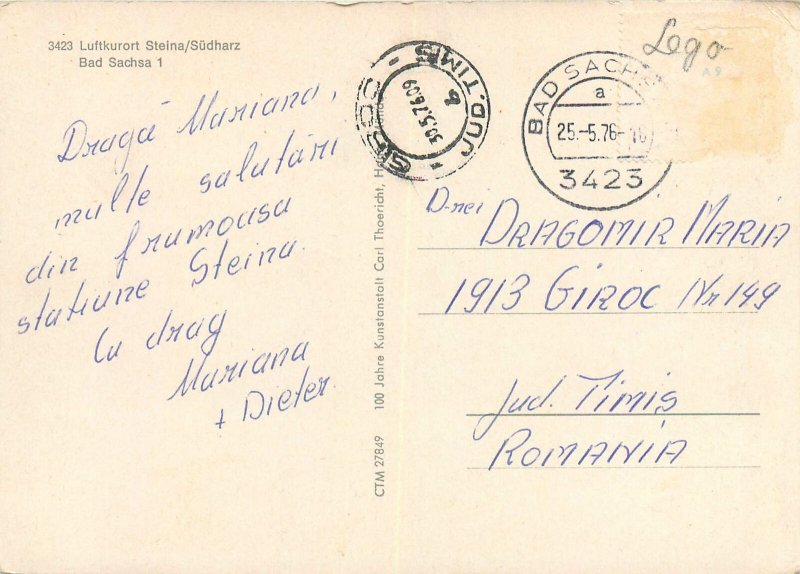 3423 Luftkurort Steina/Südharz
Bad Sachsa 1
Dragă Mariana,
multe salutări
din frumoasa
statiune Steina.
Cu drag
Mariana
+ Dieter.
CTM 27849 100 Jahre Kunstanstalt Carl Thoericht, H
GIROC
JUD. TIMIS
30.5.76.09
b
Lego
A9
BAD SACHS
a
25.-5.76-16
3423
D-rei
DRAGOMIR MARIA
1913 GIROC Nr 149
Jud. Timis
ROMANIA